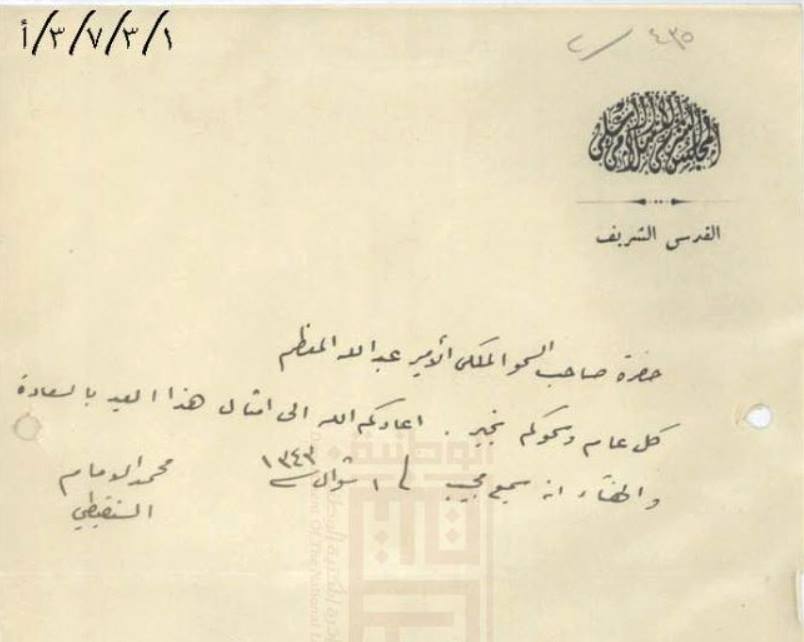 أ/٣/٧/٣/١
٤٣٥
المجلس الشرعي الإسلامي الأعلى
القدس الشريف
حضرة صاحب السمو الملكي الأمير عبد الله المعظم
كل عام وسموكم بخير . اعادكم الله الى امثال هذا العيد بالسعادة
والهناء انه سميع مجيب في ١ شوال سنة ١٣٤٣
محمد الامام
الشنقيطي
الوطنية